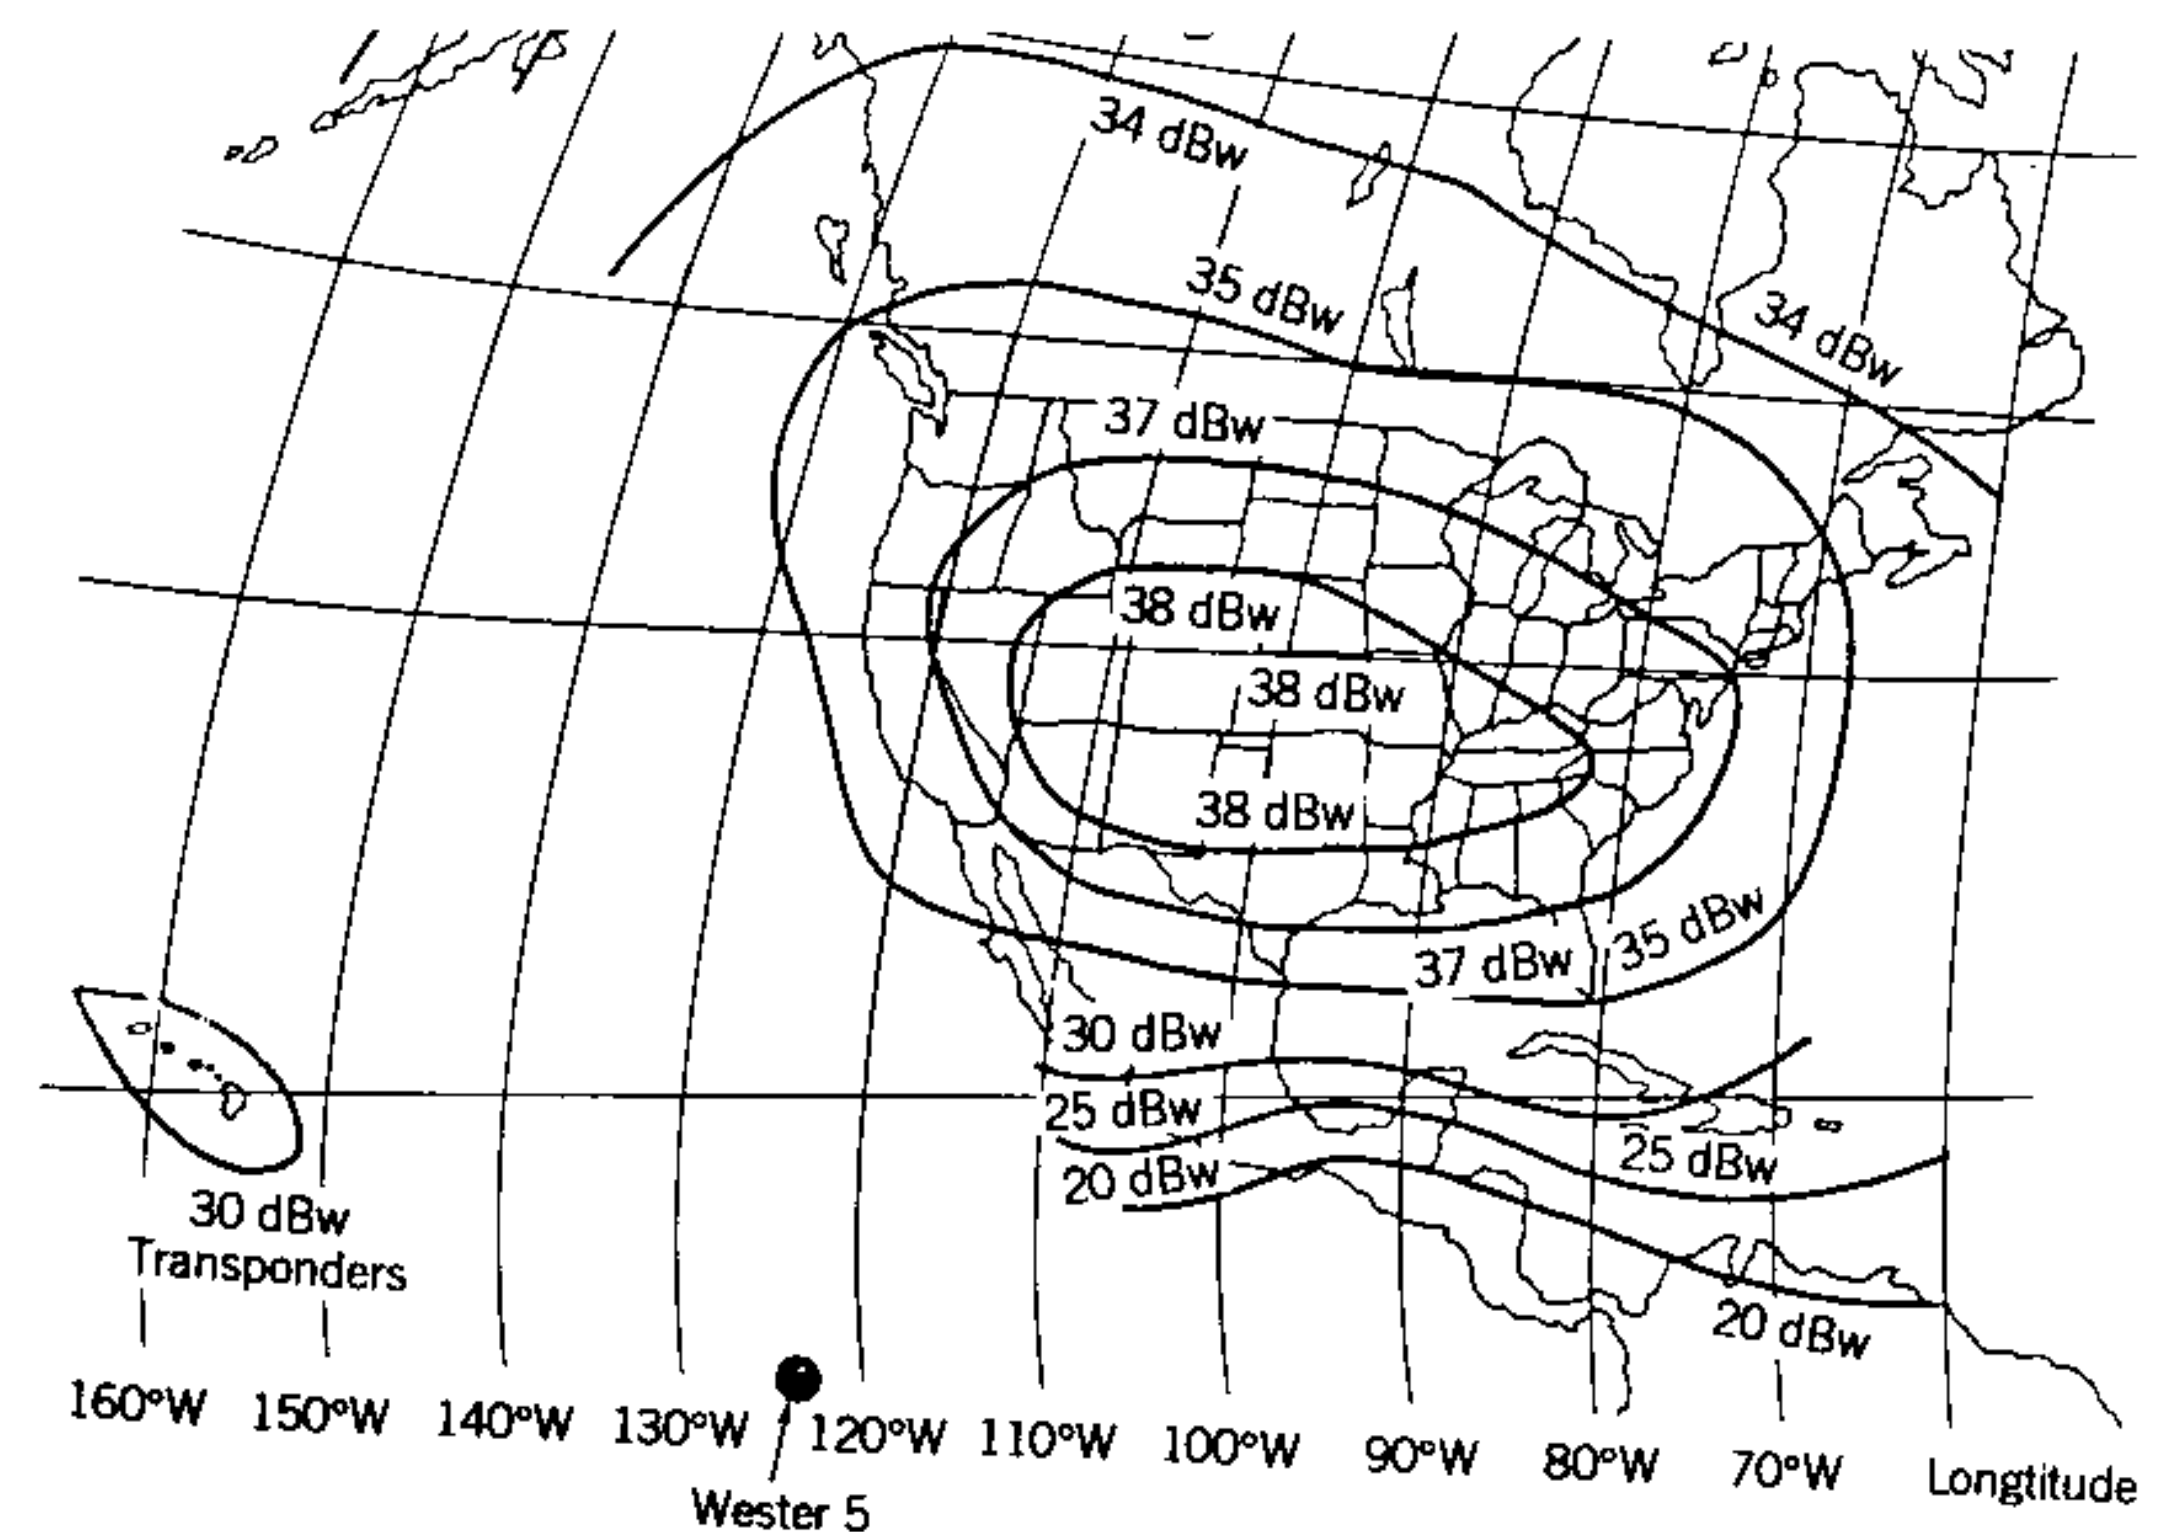 34 dBw
35 dBw
34 dBw
37 dBw
38 dBw
38 dBw
38 dBw
35 dBw
37 dBw
30 dBw
25 dBw
25 dBw
20 dBw
30 dBw
Transponders
20 dBw
160°W 150°W 140°W 130°W 120°W 110°W 100°W 90°W 80°W 70°W Longtitude
Wester 5